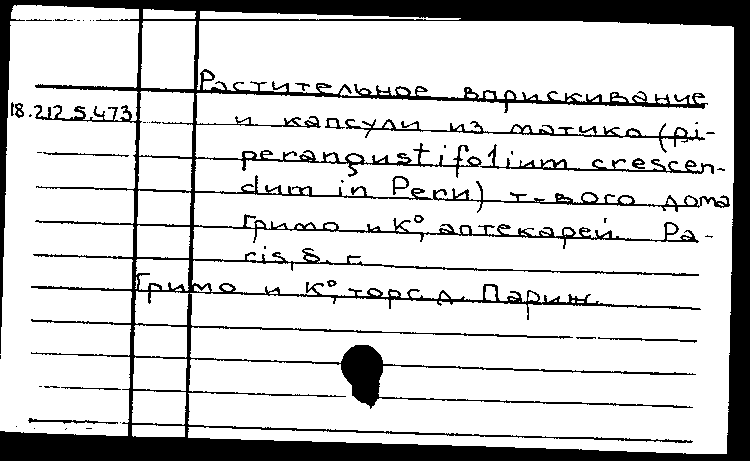 Растительное вприскивание
18.212.5.473
и капсули из матико (pi-
perangustifolium crescen-
dum in Peru) т-вого дома
Гримо и К°, аптекарей. Pa-
ris, б. г.
Гримо и К°, торг. д. Париж.